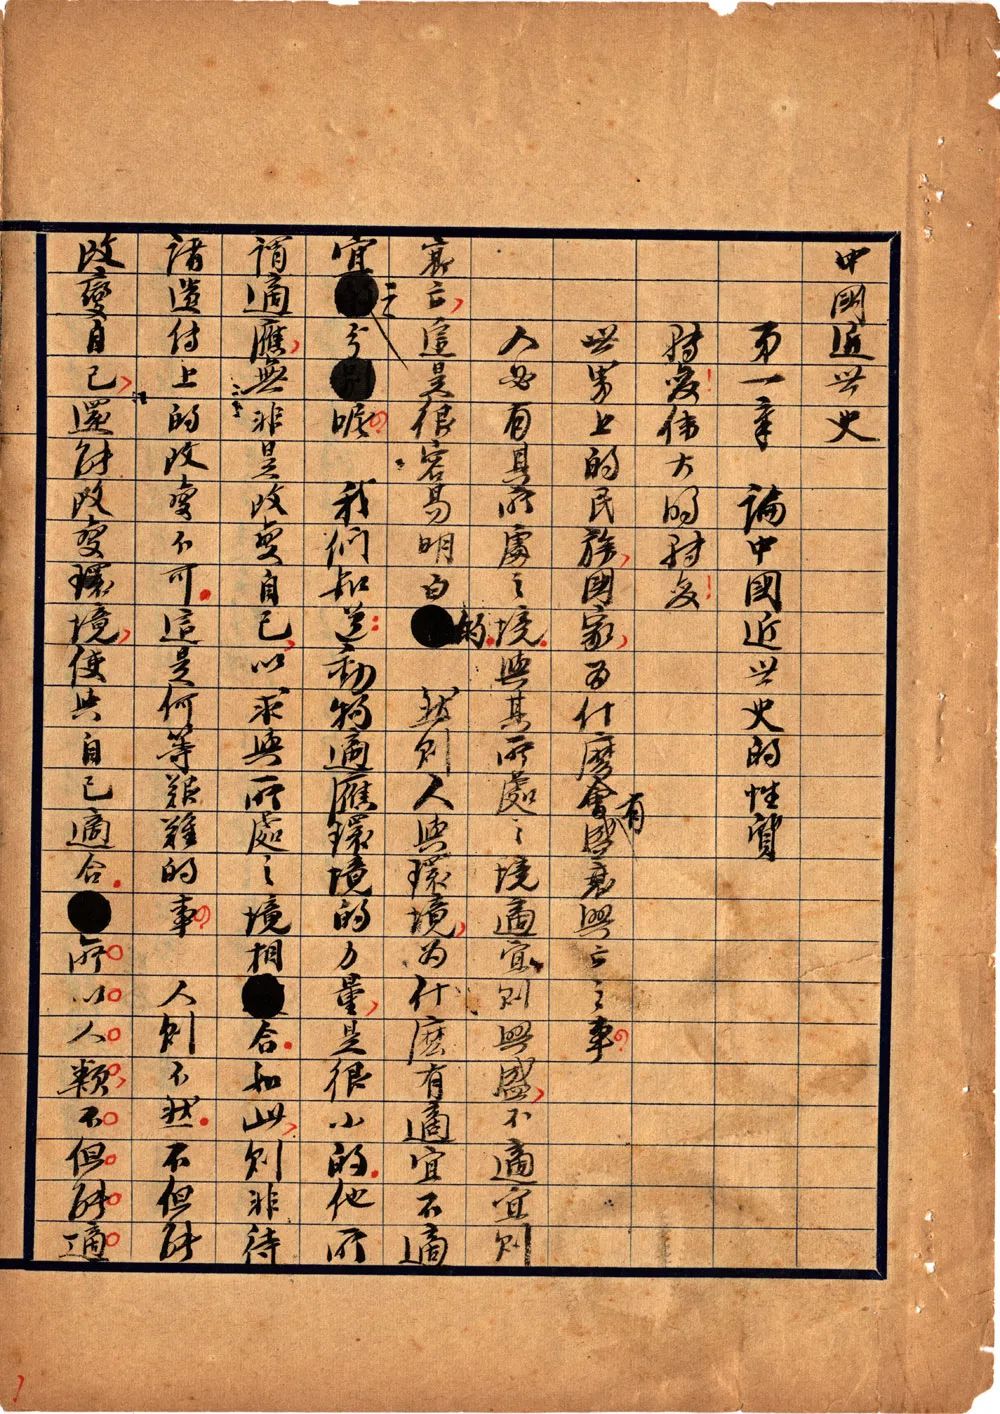 中國近世史
第一章　論中國近世史的性質
轉變！偉大的轉變！
世界上的民族，國家，為什麼會有盛衰興亡之事？
人必有其所處之境．與其所處之境適宜則興盛，不適宜則
衰亡，這是很容易明白的．　然則人與環境，為什麼有適宜不適
宜之分呢？　我們知道：動物適應環境的力量，是很小的．他所
謂適應，無非是改變自己，以求與所處之境相合．如此，則非待
諸遺傳上的改變不可．這是何等艱難的事？　人則不然．不但能
改變自己，還能改變環境，使與自己適合．所以人類不但能適